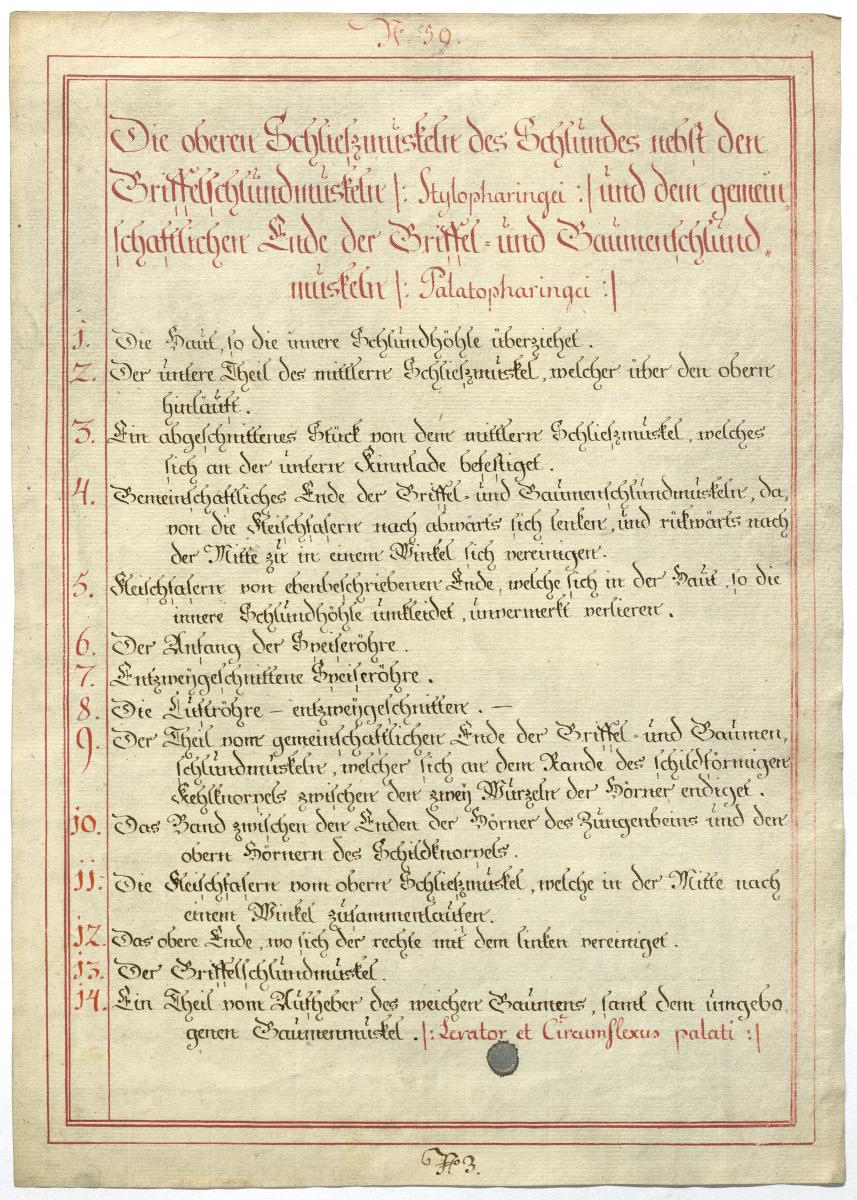 No. 59.
Die oberen Schließmuskeln des Schlundes nebst den
Griffelschlundmuskeln |: Stylopharingei :| und dem gemein„
schaftlichen Ende der Griffel- und Gaumenschlund„
muskeln |: Palatopharingei :|
1. Die Haut, so die innere Schlundhöhle überziehet.
2. Der untere Theil des mittlern Schließmuskel, welcher über den obern
hinläuft.
3. Ein abgeschnittenes Stück von dem mittlern Schließmuskel, welches
sich an der untern Kinnlade befestiget.
4. Gemeinschaftliches Ende der Griffel- und Gaumenschlundmuskeln, da„
von die Fleischfasern nach abwärts sich lenken, und rükwärts nach
der Mitte zu in einem Winkel sich vereinigen.
5. Fleischfasern von ebenbeschriebenen Ende, welche sich in der Haut, so die
innere Schlundhöhle umkleidet, unvermerkt verlieren.
6. Der Anfang der Speiseröhre.
7. Entzweygeschnittene Speiseröhre.
8. Die Luftröhre – entzweygeschnitten. –
9. Der Theil vom gemeinschaftlichen Ende der Griffel- und Gaumen„
schlundmuskeln, welcher sich an dem Rande des schildförmigen
Kehlknorpels zwischen den zwey Wurzeln der Hörner endiget.
10. Das Band zwischen den Enden der Hörner des Zungenbeins und den
obern Hörnern des Schildknorpels.
11. Die Fleischfasern vom obern Schließmuskel, welche in der Mitte nach
einem Winkel zusammenlaufen.
12. Das obere Ende, wo sich der rechte mit dem linken vereiniget.
13. Der Griffelschlundmuskel.
14. Ein Theil vom Aufheber des weichen Gaumens, samt dem umgebo„
genen Gaumenmuskel. |: Levator et Circumflexus palati :|
No 3.